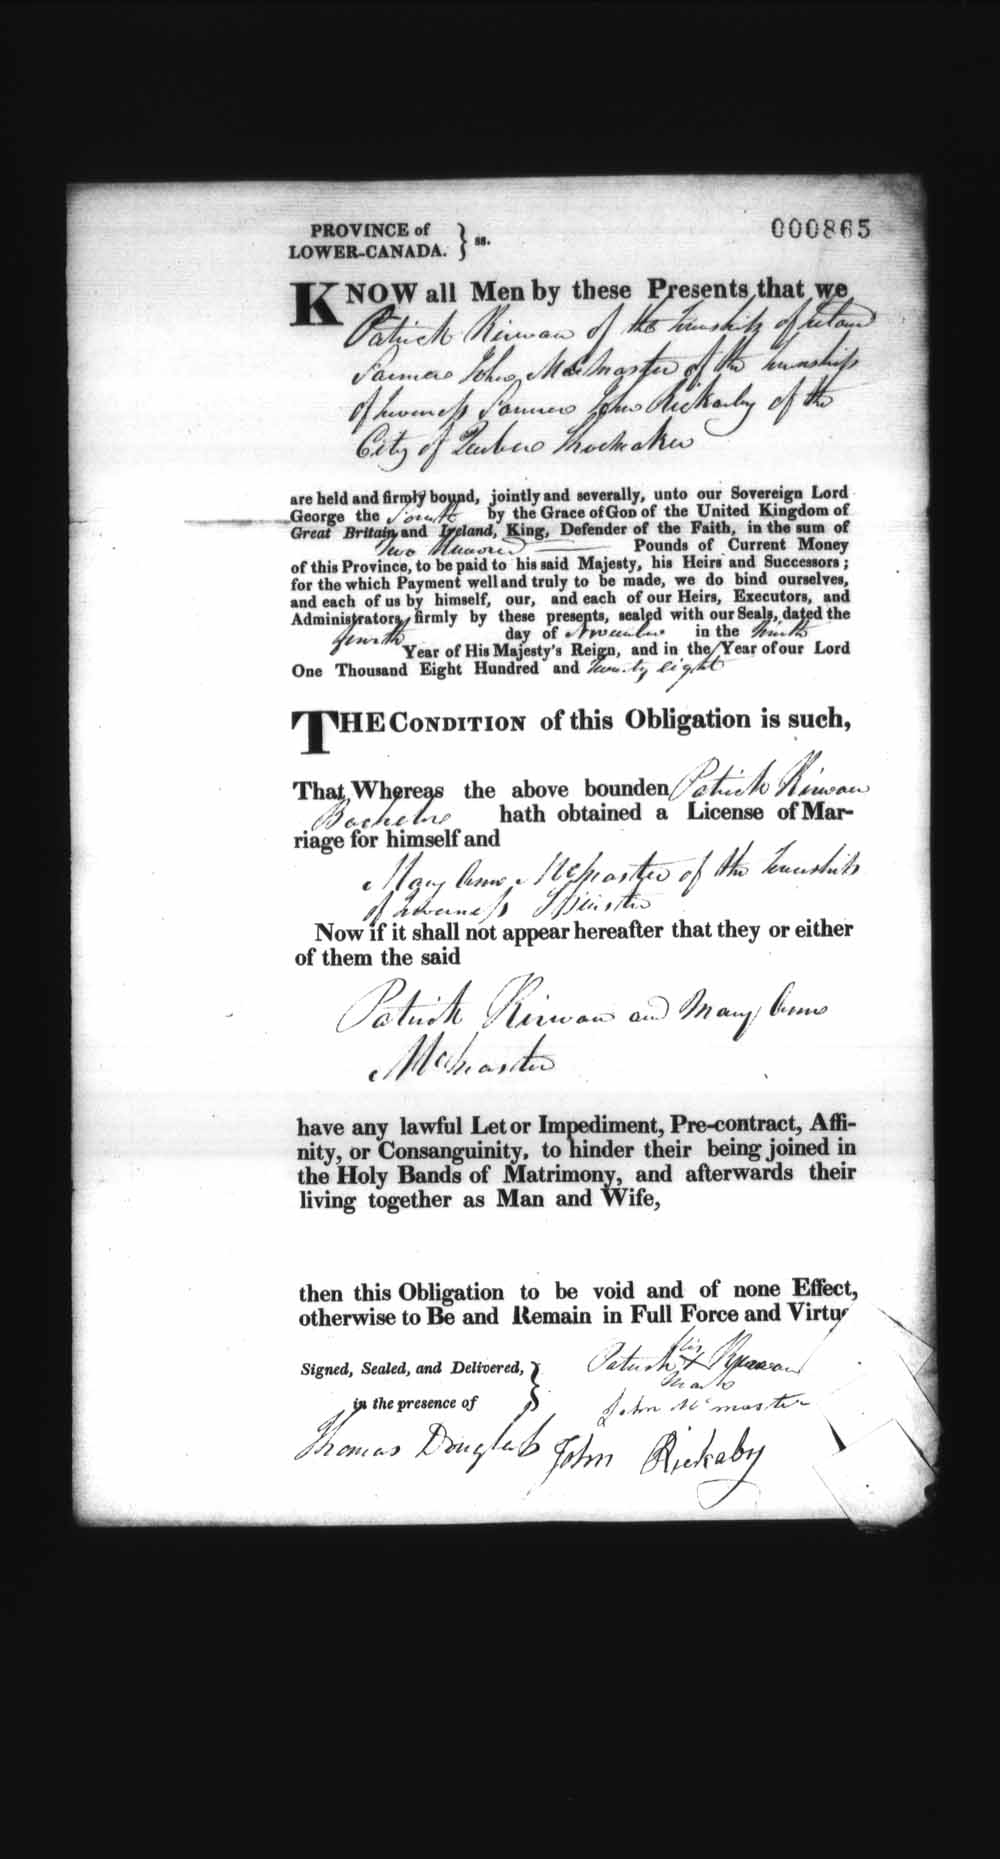 PROVINCE of
LOWER-CANADA. } ss.
000865
KNOW all Men by these Presents that we
Patrick Kirwan of the Township of
Farmer John McMaster of the Township
of Inverness Farmer John Rickaby of the
City of Quebec Shoemaker
are held and firmly bound, jointly and severally, unto our Sovereign Lord
George the Fourth by the Grace of GOD of the United Kingdom of
Great Britain and Ireland, King, Defender of the Faith, in the sum of
Two Hundred Pounds of Current Money
of this Province, to be paid to his said Majesty, his Heirs and Successors;
for the which Payment well and truly to be made, we do bind ourselves,
and each of us by himself, our, and each of our Heirs, Executors, and
Administrators, firmly by these presents, sealed with our Seals, dated the
day of November in the Ninth
Year of His Majesty's Reign, and in the Year of our Lord
One Thousand Eight Hundred and twenty eight
THE CONDITION of this Obligation is such,
That Whereas the above bounden Patrick Kirwan
Bachelor hath obtained a License of Mar-
riage for himself and
Mary Anne McMaster of the Township
of Inverness Spinster
Now if it shall not appear hereafter that they or either
of them the said
Patrick Kirwan and Mary Anne
McMaster
have any lawful Let or Impediment, Pre-contract, Affi-
nity, or Consanguinity, to hinder their being joined in
the Holy Bands of Matrimony, and afterwards their
living together as Man and Wife,
then this Obligation to be void and of none Effect,
otherwise to Be and Remain in Full Force and Virtue
his
Signed, Sealed, and Delivered, } Patrick X Kirwan
mark
in the presence of John McMaster
Thomas Douglass John Rickaby